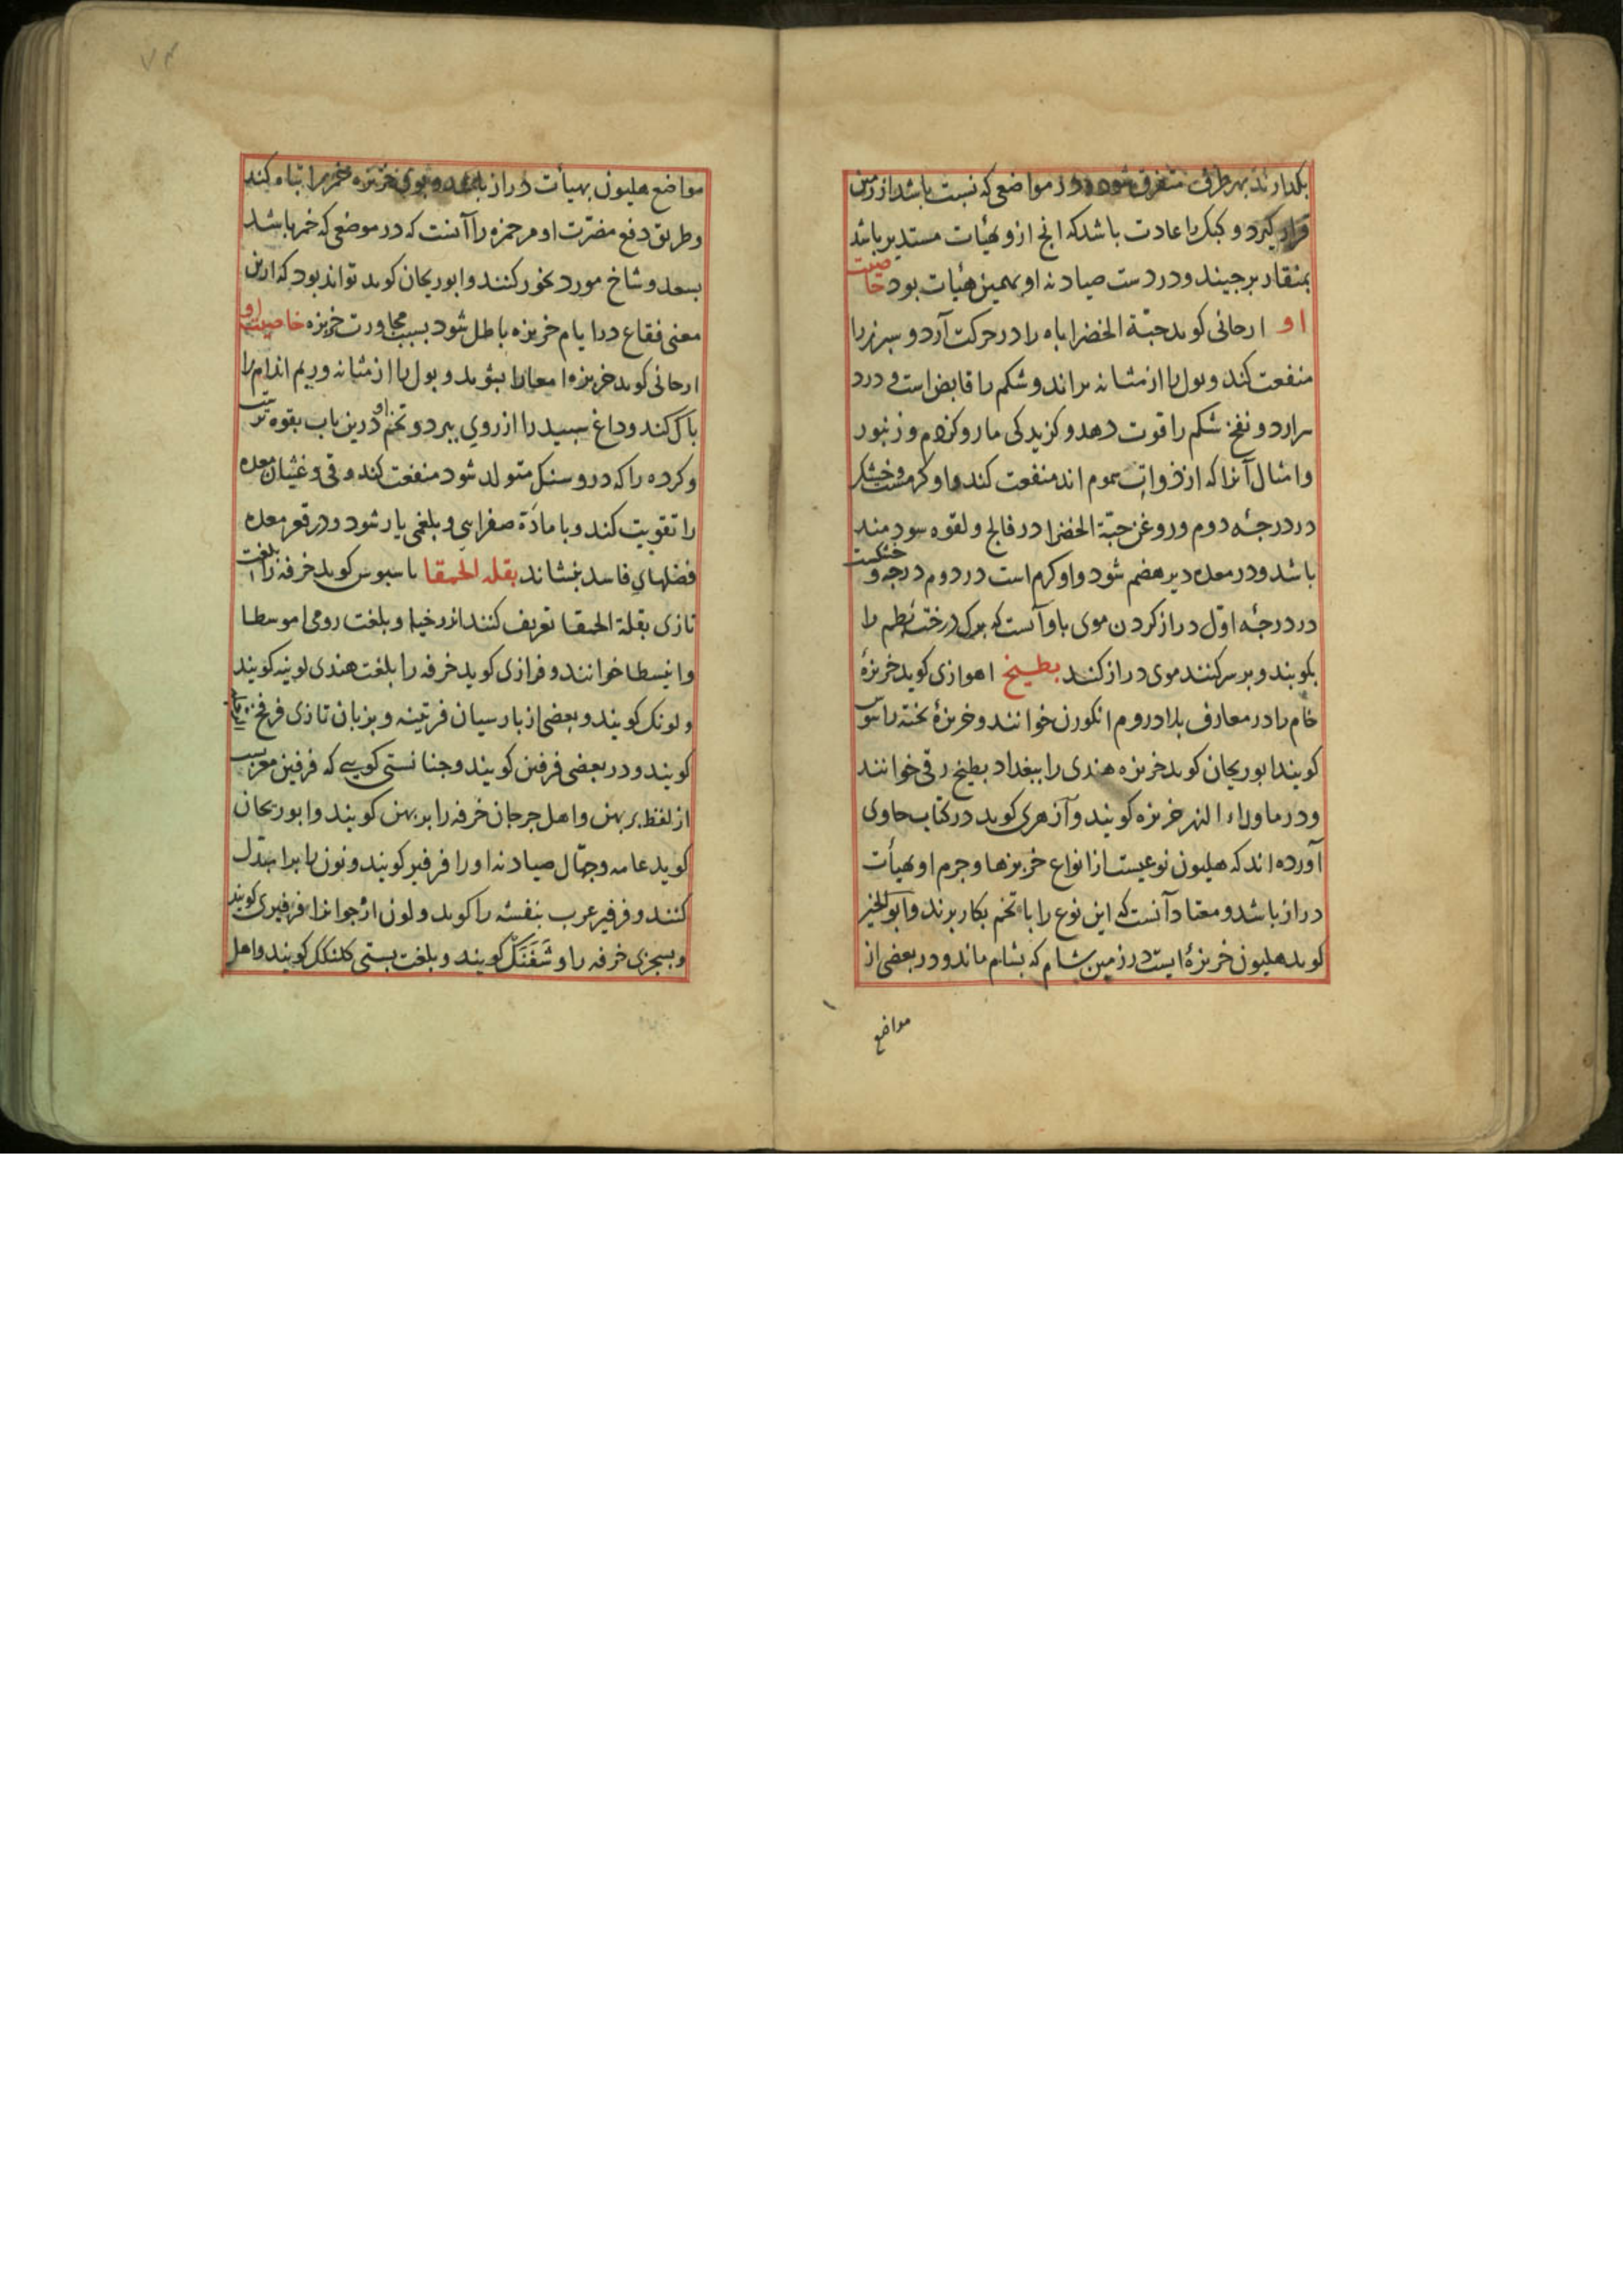 بکدارند بهر طرفی متفرق شود و در مواضعی که نسبت باشد از زمین
قرار کیرد و کبک را عادت باشد که انج ازو بهیأت مستدیر باشد
بمنقار برجیند و در دست صیادنه او بهمین هیأت بود خاصیت
او ارجانی کوید حبّة الخضرا باه را در حرکت آرد و سبرز را
منفعت کند و بول را از مثانه براند و شکم را قابض است و درد
برارد و نفخ شکم را قوت دهد و کزیدکی مار و کزدم و زنبور
وامثال آنرا که از ذوات سموم اند منفعت کند و او کرمست و خشک
در درجۀ دوم و روغن حبّة الخضرا در فالج و لقوه سودمند
باشد و در معده دیر هضم شود و او کرم است در دوم درجه و خشکست
در درجۀ اوّل دراز کردن موی باو آنست که برک درخت بُطم را
بکوبند و بر سر کنند موی دراز کند بطیخ اهوازی کوید خربزۀ
خام را در معارف بلاد روم انکورن خوانند و خربزۀ بخته را
کویند ابوریحان کوید خربزه هندی را ببغداد بطیخ رقی خوانند
ودر ماوراء النهر خربزه کویند و آزهری کوید در کتاب حاوی
آورده اند که هلیون نوعیست از انواع خربزها و جرم او بهیأت
دراز باشد و معتاد آنست که این نوع را با تخم بکار برند وابوالخیر
کوید هلیون خربزۀ ایست در زمین شام که بشام ماند و در بعضی از
مواضع
مواضع هلیون بهیأت دراز باشد و بوی خربزه خمر را تباه کند
وطریق دفع مضرّت او مر خمره را آنست که در موضعی که خمر باشد
بسعد و شاخ مورد بخور کنند وابوریحان کوید تواند بود که ازین
معنی فقاع در ایام خربزه باطل شود بسبب مجاورت خربزه خاصیت او
ارجانی کوید خربزه امعا را بشوید و بول را از مثانه و ریم اندام را
باک کند و داغ سبید را از روی ببرد و تخم او درین باب بقوه تر
و کرده را که درو سنک متولد شود منفعت کند و قی و غشیان معده
را تقویت کند و با مادّة صفرایی و بلغمی یار شود و در قعر معده
فضلهای فاسد بنشاند بقله الحمقا باسیوس کوید خرفه را بلغت
تازی بقلة الحمقا تعریف کنند اندرخیا و بلغت رومی اموسطا
وانیسطا خوانند و فرازی کوید خرفه را بلغت هندی لونیه کویند
و لونک کویند و بعضی از بارسیان فرتینه و بزبان تازی فرفخ
کویند و در بعضی فرفین کویند و جنانستی کویی که فرفین معربست
از لفظ بربهن و اهل جرجان خرفه را بربهن کویند وابوریحان
کوید عامه و جهّال صیادنه اورا فرفیر کویند و نون را برا بدل
کنند و فرفیر عرب بنفسه را کوید و لون ارجوانرا فرفیری کویند
و بسجزی خرفه را وشَفَنَکْ کویند و بلغت بستی کلنکک کویند واهل